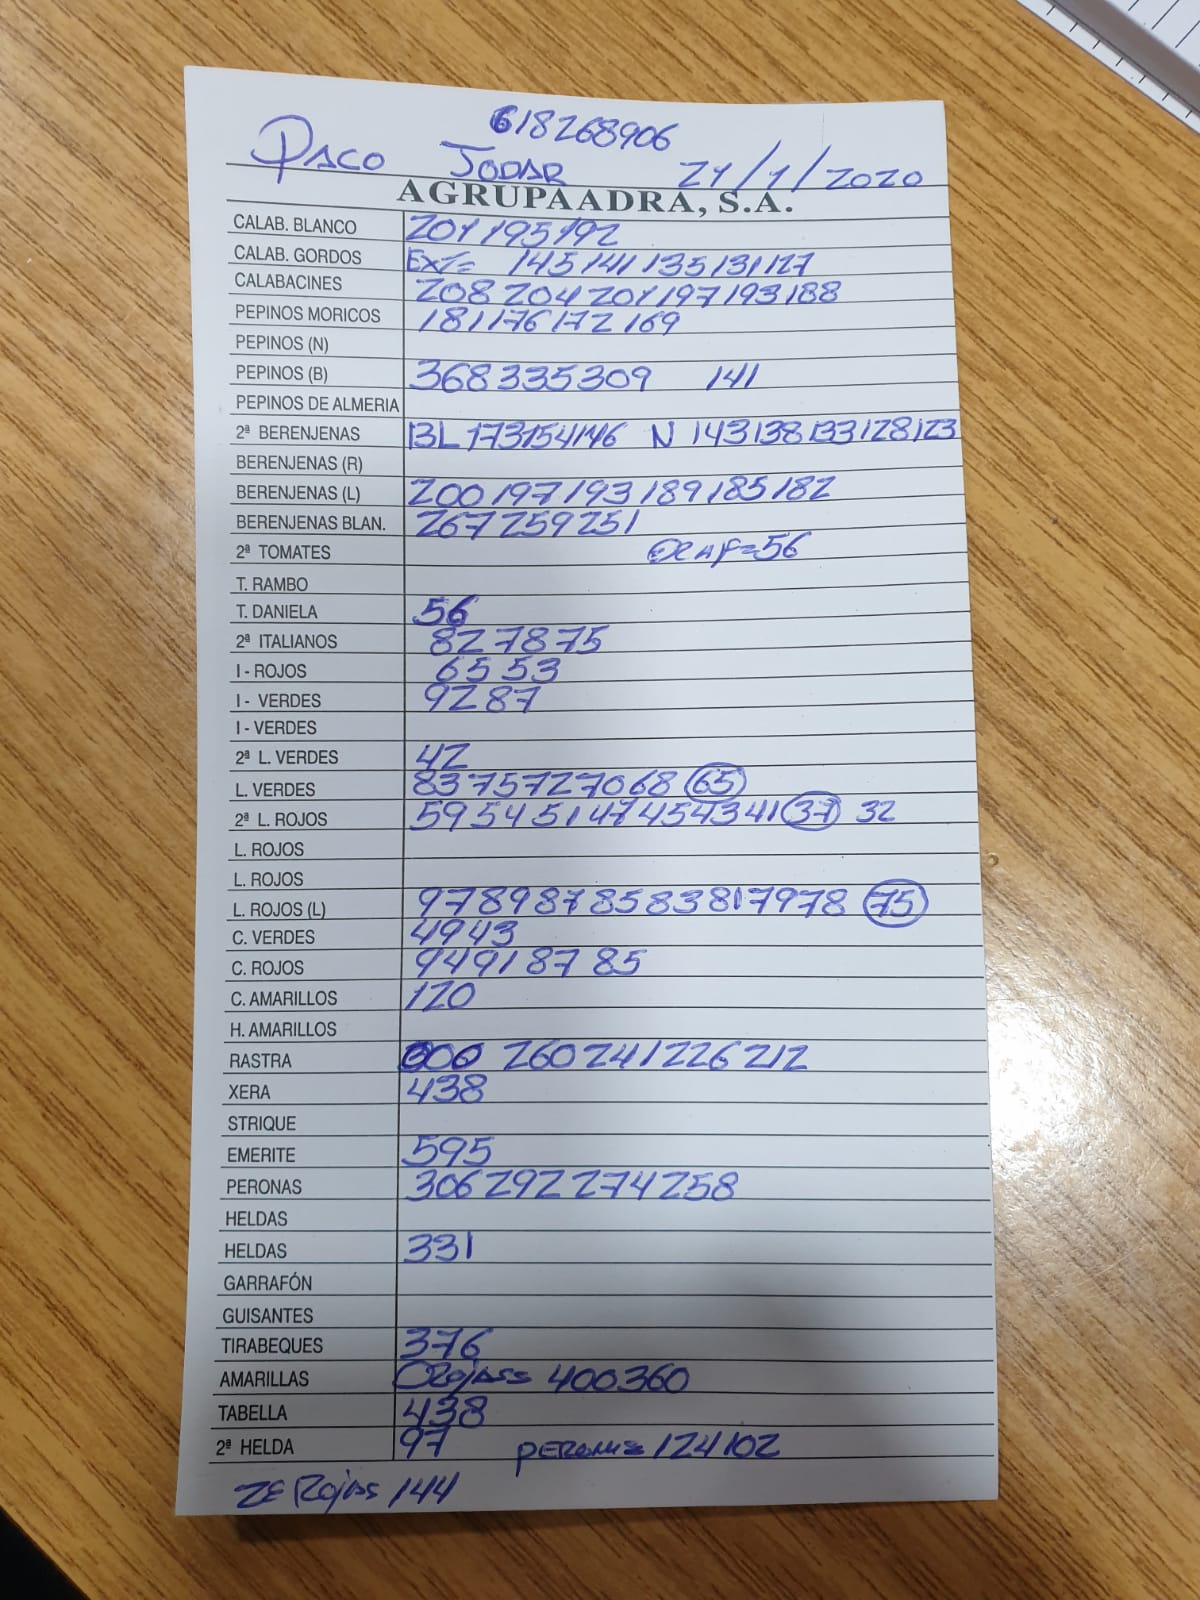 618268906
PACO JODAR 21/1/2020
AGRUPAADRA, S.A.
CALAB. BLANCO 201 195 192
CALAB. GORDOS EXT= 145 141 135 131 127
CALABACINES 208 204 201 197 193 188
PEPINOS MORICOS 181 176 172 169
PEPINOS (N)
PEPINOS (B) 368 335 309 141
PEPINOS DE ALMERIA
2ª BERENJENAS BL 173 154 146 N 143 138 133 128 123
BERENJENAS (R)
BERENJENAS (L) 200 197 193 189 185 182
BERENJENAS BLAN. 267 259 251
2ª TOMATES =56
T. RAMBO
T. DANIELA 56
2ª ITALIANOS 82 78 75
I - ROJOS 65 53
I - VERDES 92 87
I - VERDES
2ª L. VERDES 42
L. VERDES 83 75 72 70 68 65
2ª L. ROJOS 59 54 51 47 45 43 41 37 32
L. ROJOS
L. ROJOS
L. ROJOS (L) 97 89 87 85 83 81 79 78 75
C. VERDES 49 43
C. ROJOS 94 91 87 85
C. AMARILLOS 120
H. AMARILLOS
RASTRA 260 241 226 212
XERA 438
STRIQUE
EMERITE 595
PERONAS 306 292 274 258
HELDAS
HELDAS 331
GARRAFÓN
GUISANTES
TIRABEQUES 376
AMARILLAS ROjAS 400 360
TABELLA 438
2ª HELDA 97 124 102
ROjAS 144